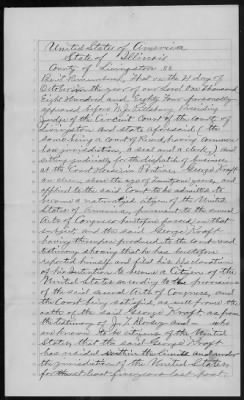 United States of America
State of Illinois
County of Livingston SS
Be it Remembered, That on the 21 day of
October in the year of our Lord One Thousand
Eight Hundred and Eighty Four personally
appeared before N. J. Pillsbury Presiding
Judge of the Circuit Court of the County of
Livingston and State aforesaid (the
same being a Court of Record, having Common
Law jurisdiction, a seal and a clerk) and
sitting judicially for the dispatch of business
at the Court House in Pontiac George Kraft
an alien, above the age of twenty one years, and
applied to the said Court to be admitted to
become a naturalized citizen of the United
States of America, pursuant to the several
Acts of Congress heretofore passed on that
subject and the said George Kraft
having thereupon produced to the Court record
testimony showing that he has heretofore
reported himself and filed his Declaration
of his Intention to become a Citizen of the
United States according to the provisions
of the said several Acts of Congress, and
the Court being satisfied, as well from the
oath of the said George Kraft as from
the testimony of and who
are known to be citizens of the United
States that the said George Kraft
has resided within the limits and under
the jurisdiction of the United States
for at least five years last past,